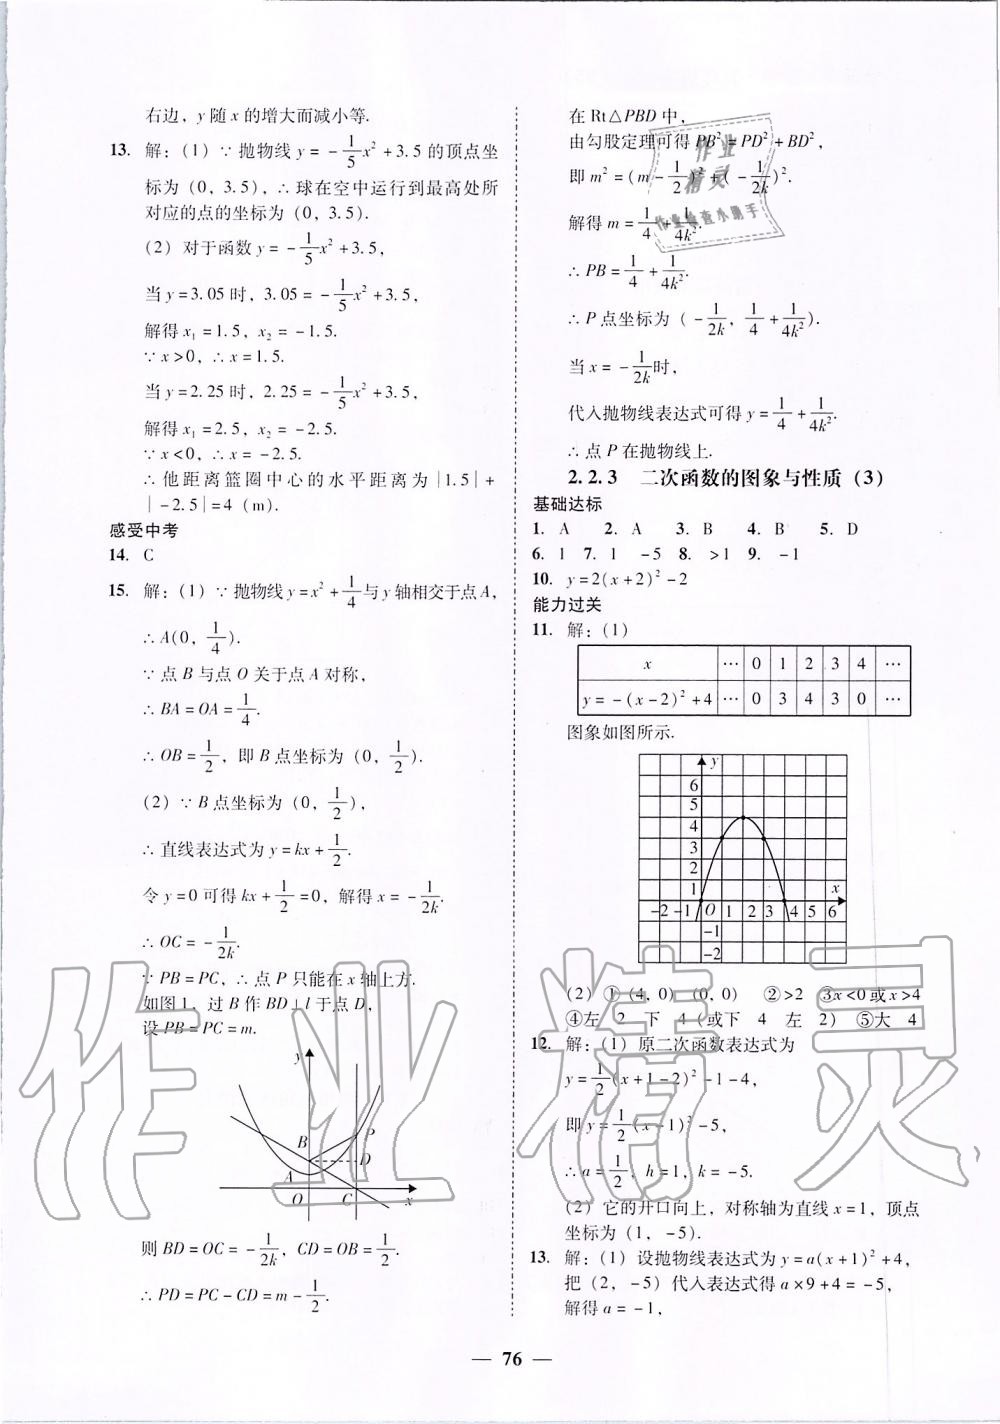 右边，y 随 x 的增大而减小等.
13. 解：（1）∵ 抛物线 y = -1/5x² + 3.5 的顶点坐
标为（0，3.5），∴ 球在空中运行到最高处所
对应的点的坐标为（0，3.5）.
（2）对于函数 y = -1/5x² + 3.5，
当 y = 3.05 时，3.05 = -1/5x² + 3.5，
解得 x₁ = 1.5，x₂ = -1.5.
∵ x > 0，∴ x = 1.5.
当 y = 2.25 时，2.25 = -1/5x² + 3.5，
解得 x₁ = 2.5，x₂ = -2.5.
∵ x < 0，∴ x = -2.5.
∴ 他距离篮圈中心的水平距离为 |1.5| +
|-2.5| = 4（m）.
感受中考
14. C
15. 解：（1）∵ 抛物线 y = x² + 1/4 与 y 轴相交于点 A，
∴ A(0, 1/4).
∵ 点 B 与点 O 关于点 A 对称，
∴ BA = OA = 1/4.
∴ OB = 1/2，即 B 点坐标为（0，1/2）.
（2）∵ B 点坐标为（0，1/2），
∴ 直线表达式为 y = kx + 1/2.
令 y = 0 可得 kx + 1/2 = 0，解得 x = -1/2k.
∴ OC = -1/2k.
∵ PB = PC，∴ 点 P 只能在 x 轴上方.
如图 1，过 B 作 BD⊥l 于点 D，
设 PB = PC = m.
y
B
P
A
D
O
C
x
则 BD = OC = -1/2k，CD = OB = 1/2.
∴ PD = PC - CD = m - 1/2.
在 Rt△PBD 中，
由勾股定理可得 PB² = PD² + BD²，
即 m² = (m - 1/2)² + (-1/2k)².
解得 m = 1/4 + 1/4k².
∴ PB = 1/4 + 1/4k².
∴ P 点坐标为（-1/2k，1/4 + 1/4k²）.
当 x = -1/2k 时，
代入抛物线表达式可得 y = 1/4 + 1/4k².
∴ 点 P 在抛物线上.
2.2.3 二次函数的图象与性质（3）
基础达标
1. A 2. A 3. B 4. B 5. D
6. 1 7. 1 -5 8. >1 9. -1
10. y = 2(x + 2)² - 2
能力过关
11. 解：（1）
x … 0 1 2 3 4 …
y = -(x - 2)² + 4 … 0 3 4 3 0 …
图象如图所示.
y
6
5
4
3
2
1 x
-2 -1 O 1 2 3 4 5 6
-1
-2
（2）①（4，0）（0，0） ②>2 ③x<0 或 x>4
④左 2 下 4（或下 4 左 2） ⑤大 4
12. 解：（1）原二次函数表达式为
y = 1/2(x + 1 - 2)² - 1 - 4，
即 y = 1/2(x - 1)² - 5，
∴ a = 1/2，h = 1，k = -5.
（2）它的开口向上，对称轴为直线 x = 1，顶点
坐标为（1，-5）.
13. 解：（1）设抛物线表达式为 y = a(x + 1)² + 4，
把（2，-5）代入表达式得 a × 9 + 4 = -5，
解得 a = -1，
— 76 —
作业
精灵
作业检查小助手
作业精灵